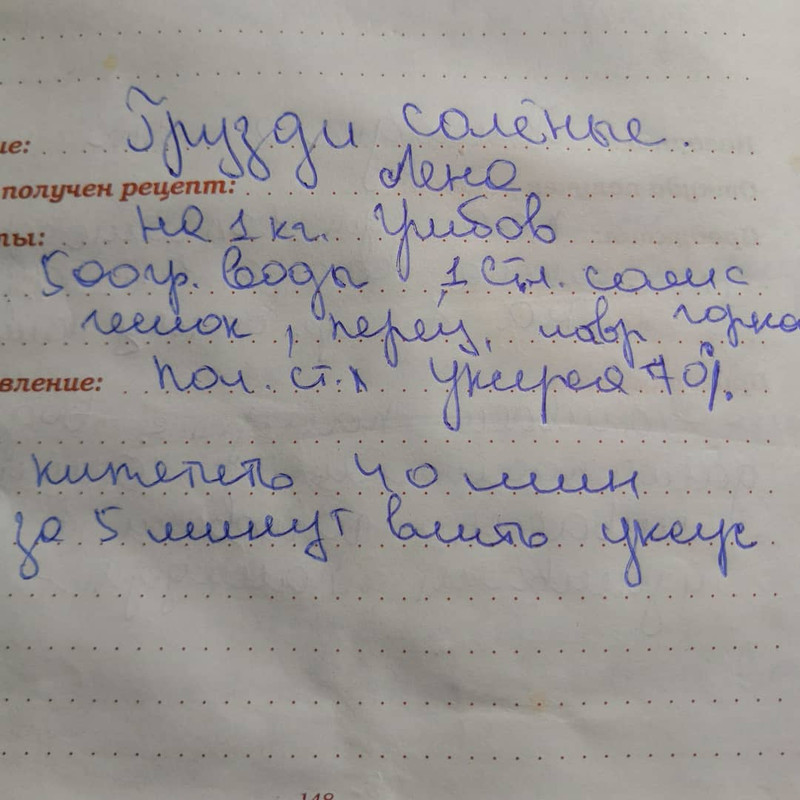 ие: Грузди солёные.
получен рецепт: Лена
ты: на 1 кг. грибов
500гр. воды 1 ст.л. соли с
чеснок, перец, лавр горка
вление: пол. ст.л уксуса 70%.
кипятить 40 мин
за 5 минут влить уксус
148